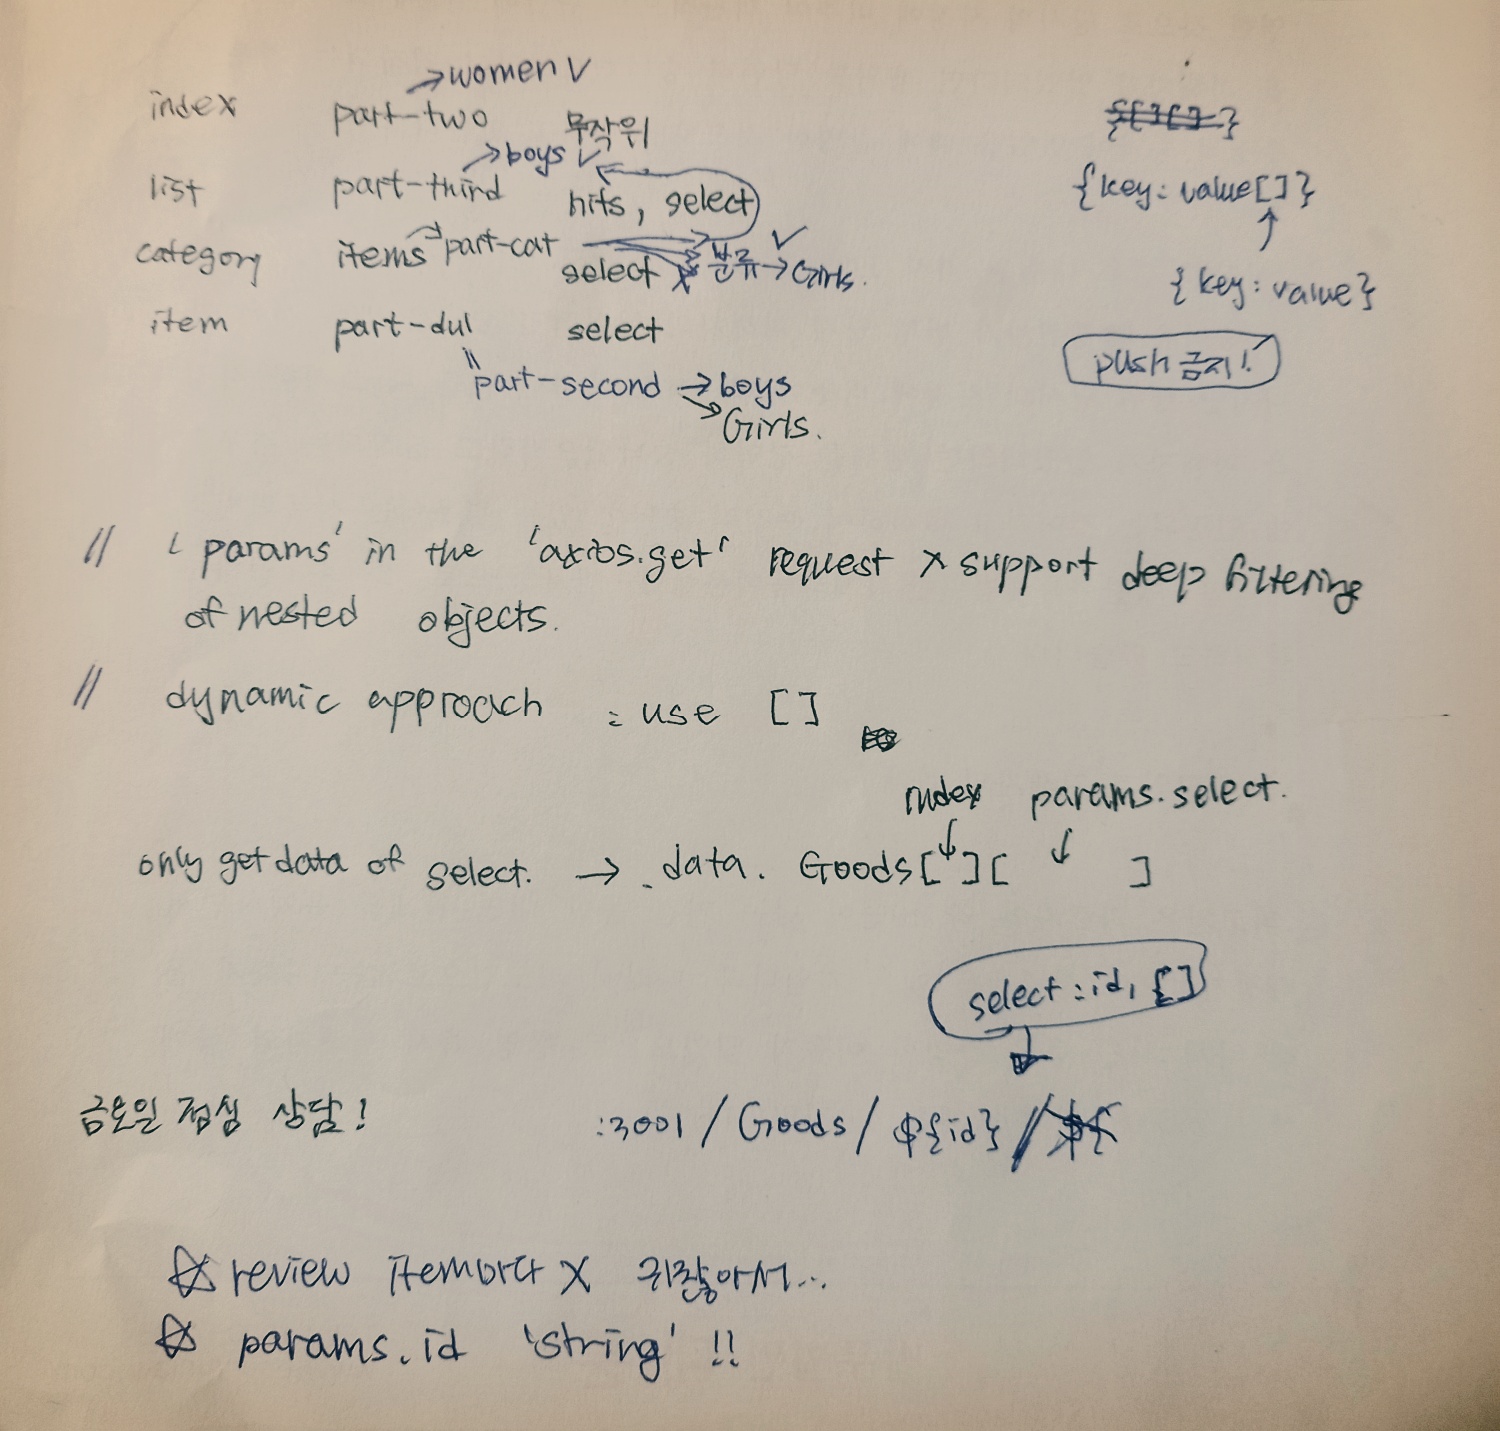 →women ✓
index part-two 무작위
→boys ✓
list part-third hits, select
category items→part-cat select 분류→Girls.
item part-dul select
part-second →boys
→Girls.
{key: value[]}
↑
{key: value}
push 금지!
// 'params' in the 'axios.get' request x support deep filtering
of nested objects.
// dynamic approach : use []
index params.select.
only get data of select. → .data. Goods[ ][ ]
select : id, []
금요일 점심 상담!
:3001/Goods/${id}/
☆ review item마다 X 귀찮아서...
☆ params.id 'string' !!